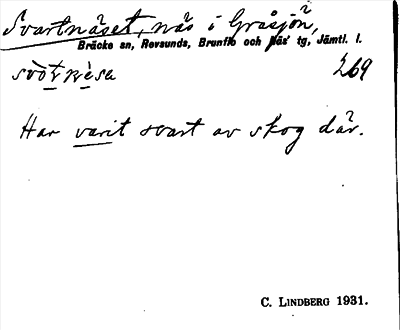 Svartnäset, näs i Gråsjön,
Bräcke sn, Revsunds, Brunflo och Näs' tg, Jämtl. l.
269
Har varit svart av skog där.
C. LINDBERG 1931.